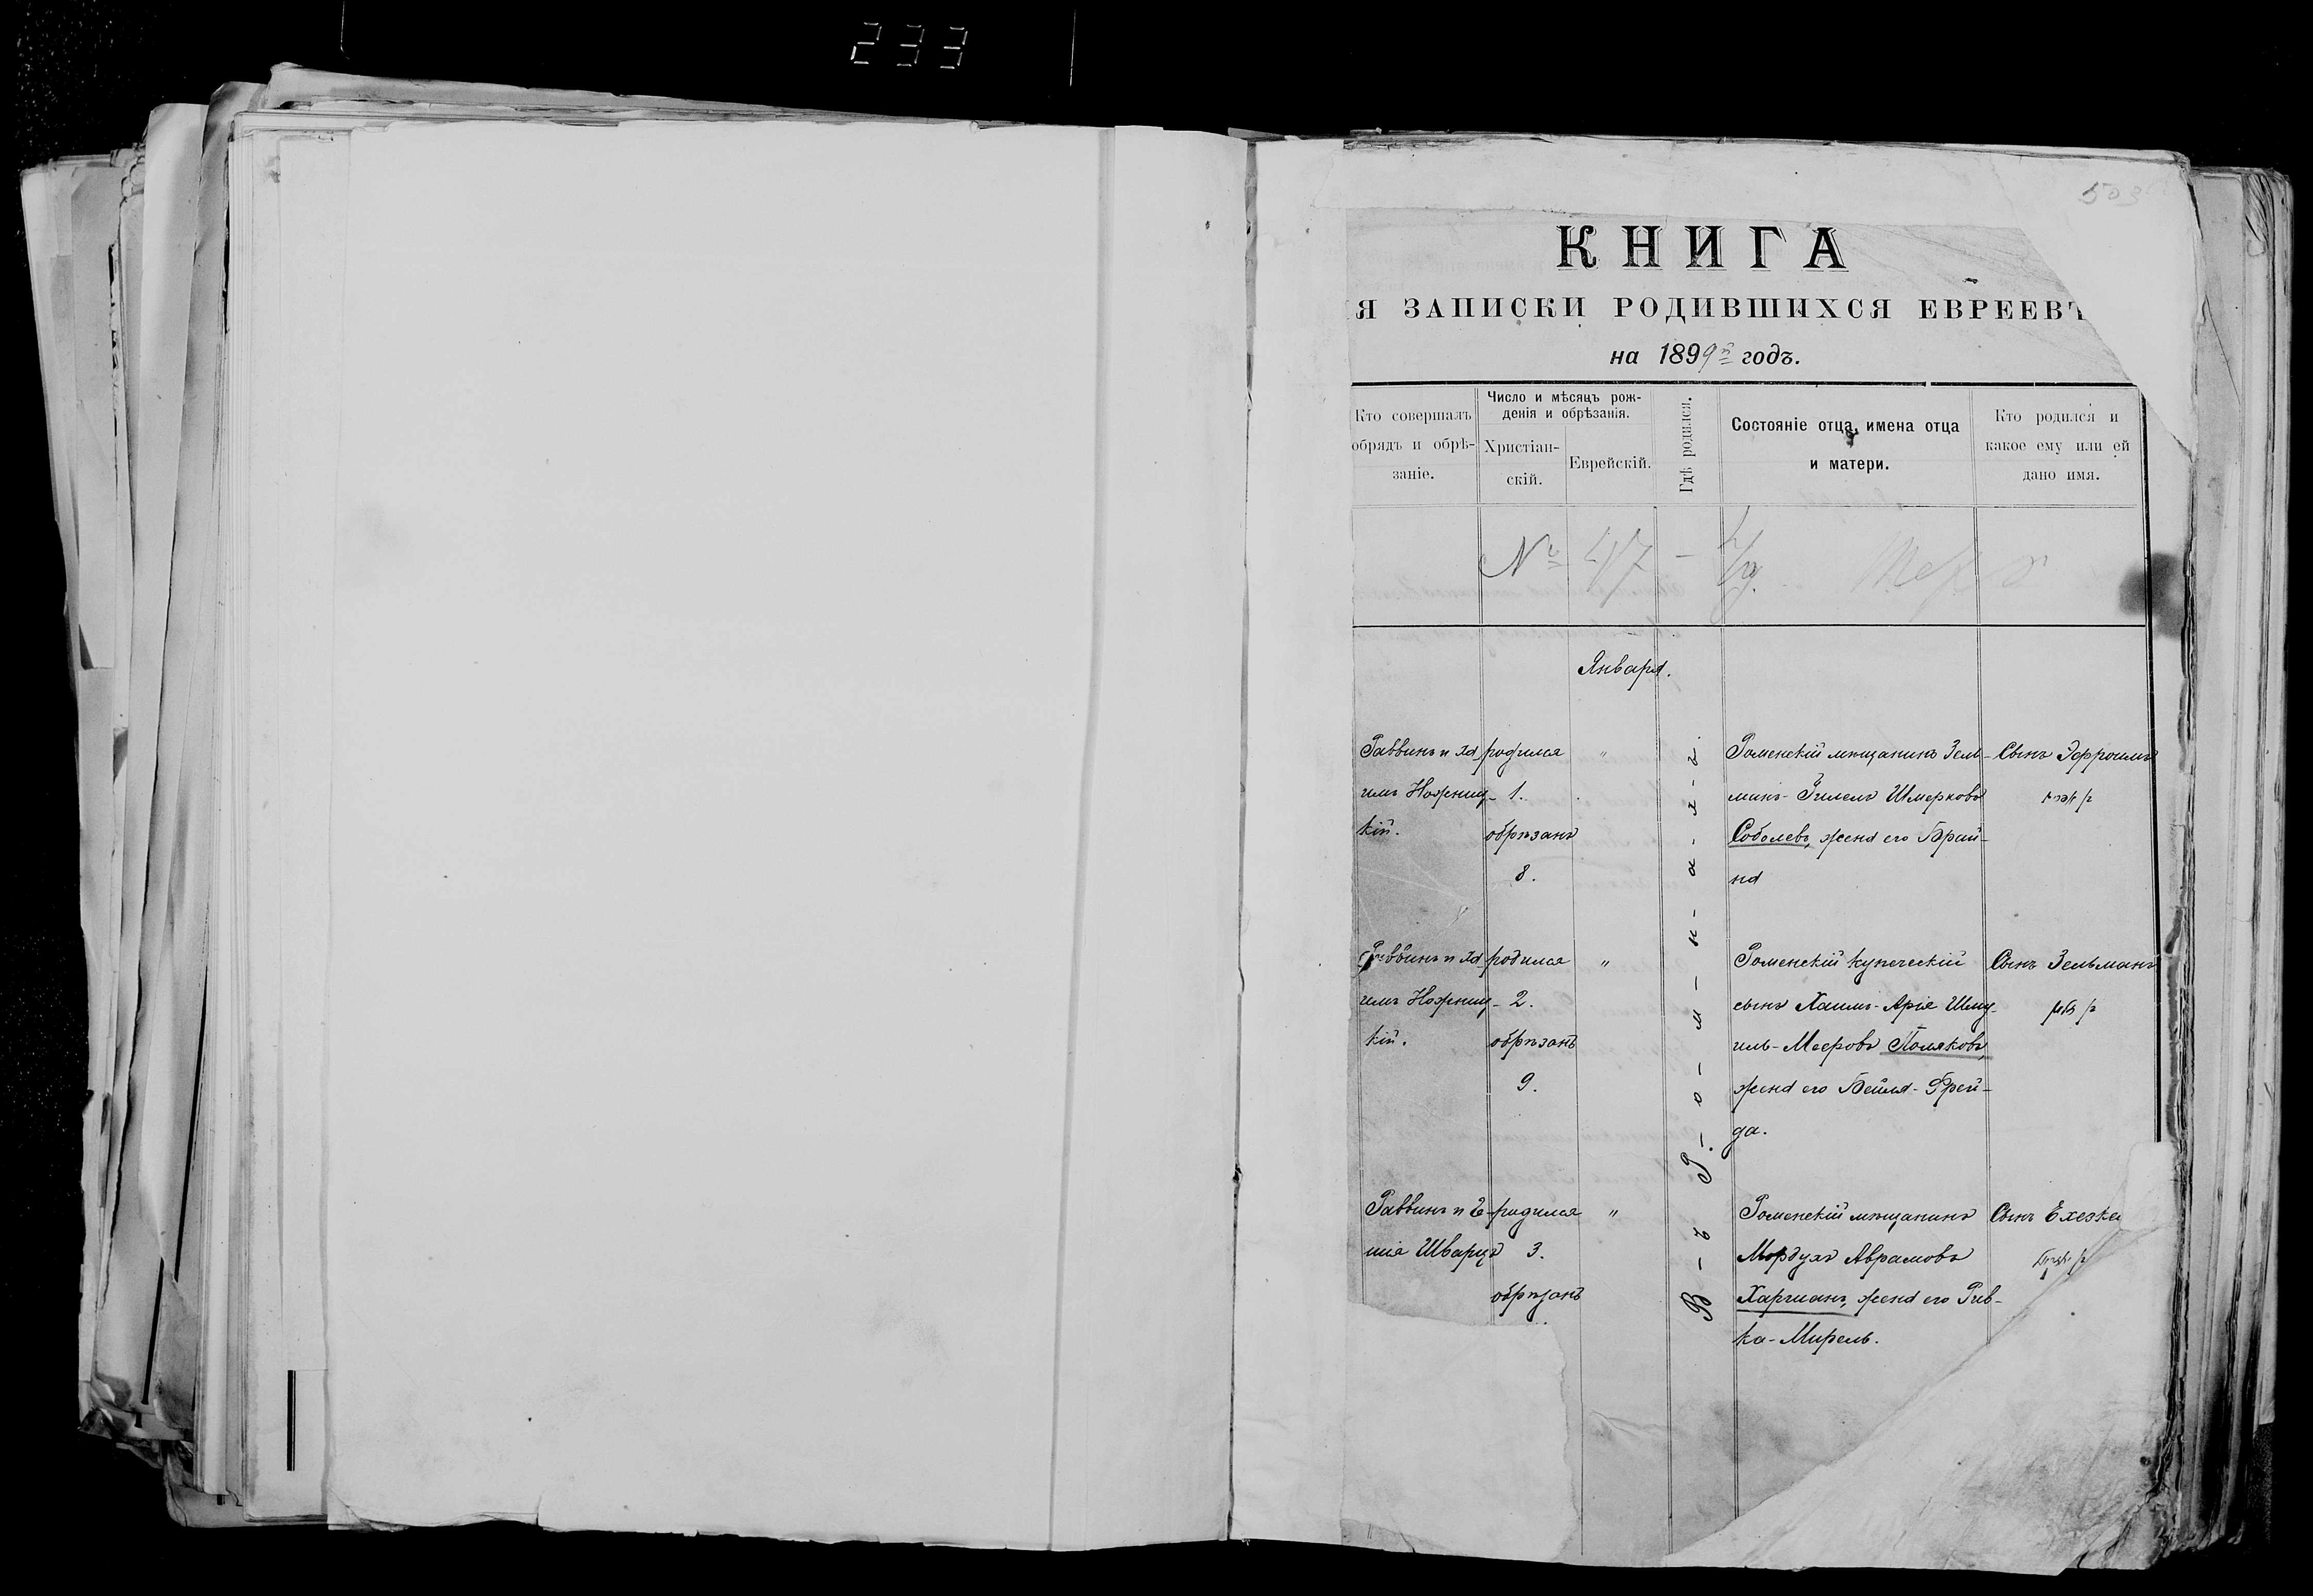 233
503
КНИГА
Я ЗАПИСКИ РОДИВШИХСЯ ЕВРЕЕВЪ
на 1899й годъ.
Кто совершалъ
обрядъ и обрѣ-
заніе.
Число и мѣсяцъ рож-
денія и обрѣзанія.
Христіан-
скій.
Еврейскій.
Гдѣ родился.
Состояніе отца, имена отца
и матери.
Кто родился и
какое ему или ей
дано имя.
№ 47
Января.
Раввинъ и Ха-
имъ Ножниц-
кій.
родился
1.
обрѣзанъ
8.
"
В-ъ Р-о-м-н-а-х-ъ.
Роменскій мѣщанинъ Зель-
минъ-Гилелъ Шмерковъ
Соболевъ, жена его Брай-
на
Сынъ Эфроимъ
Раввинъ и Ха-
имъ Ножниц-
кій.
родился
2.
обрѣзанъ
9.
"
Роменскій купеческій
сынъ Хаимъ-Арія Шму-
иль-Мееровъ Поляковъ,
жена его Бейля-Фрей-
да.
Сынъ Зельманъ
Раввинъ и
Шварцъ
родился
3.
обрѣзанъ
"
Роменскій мѣщанинъ
Мордухъ Абрамовъ
Харгманъ, жена его Рив-
ка-Мирель.
Сынъ Ехезке